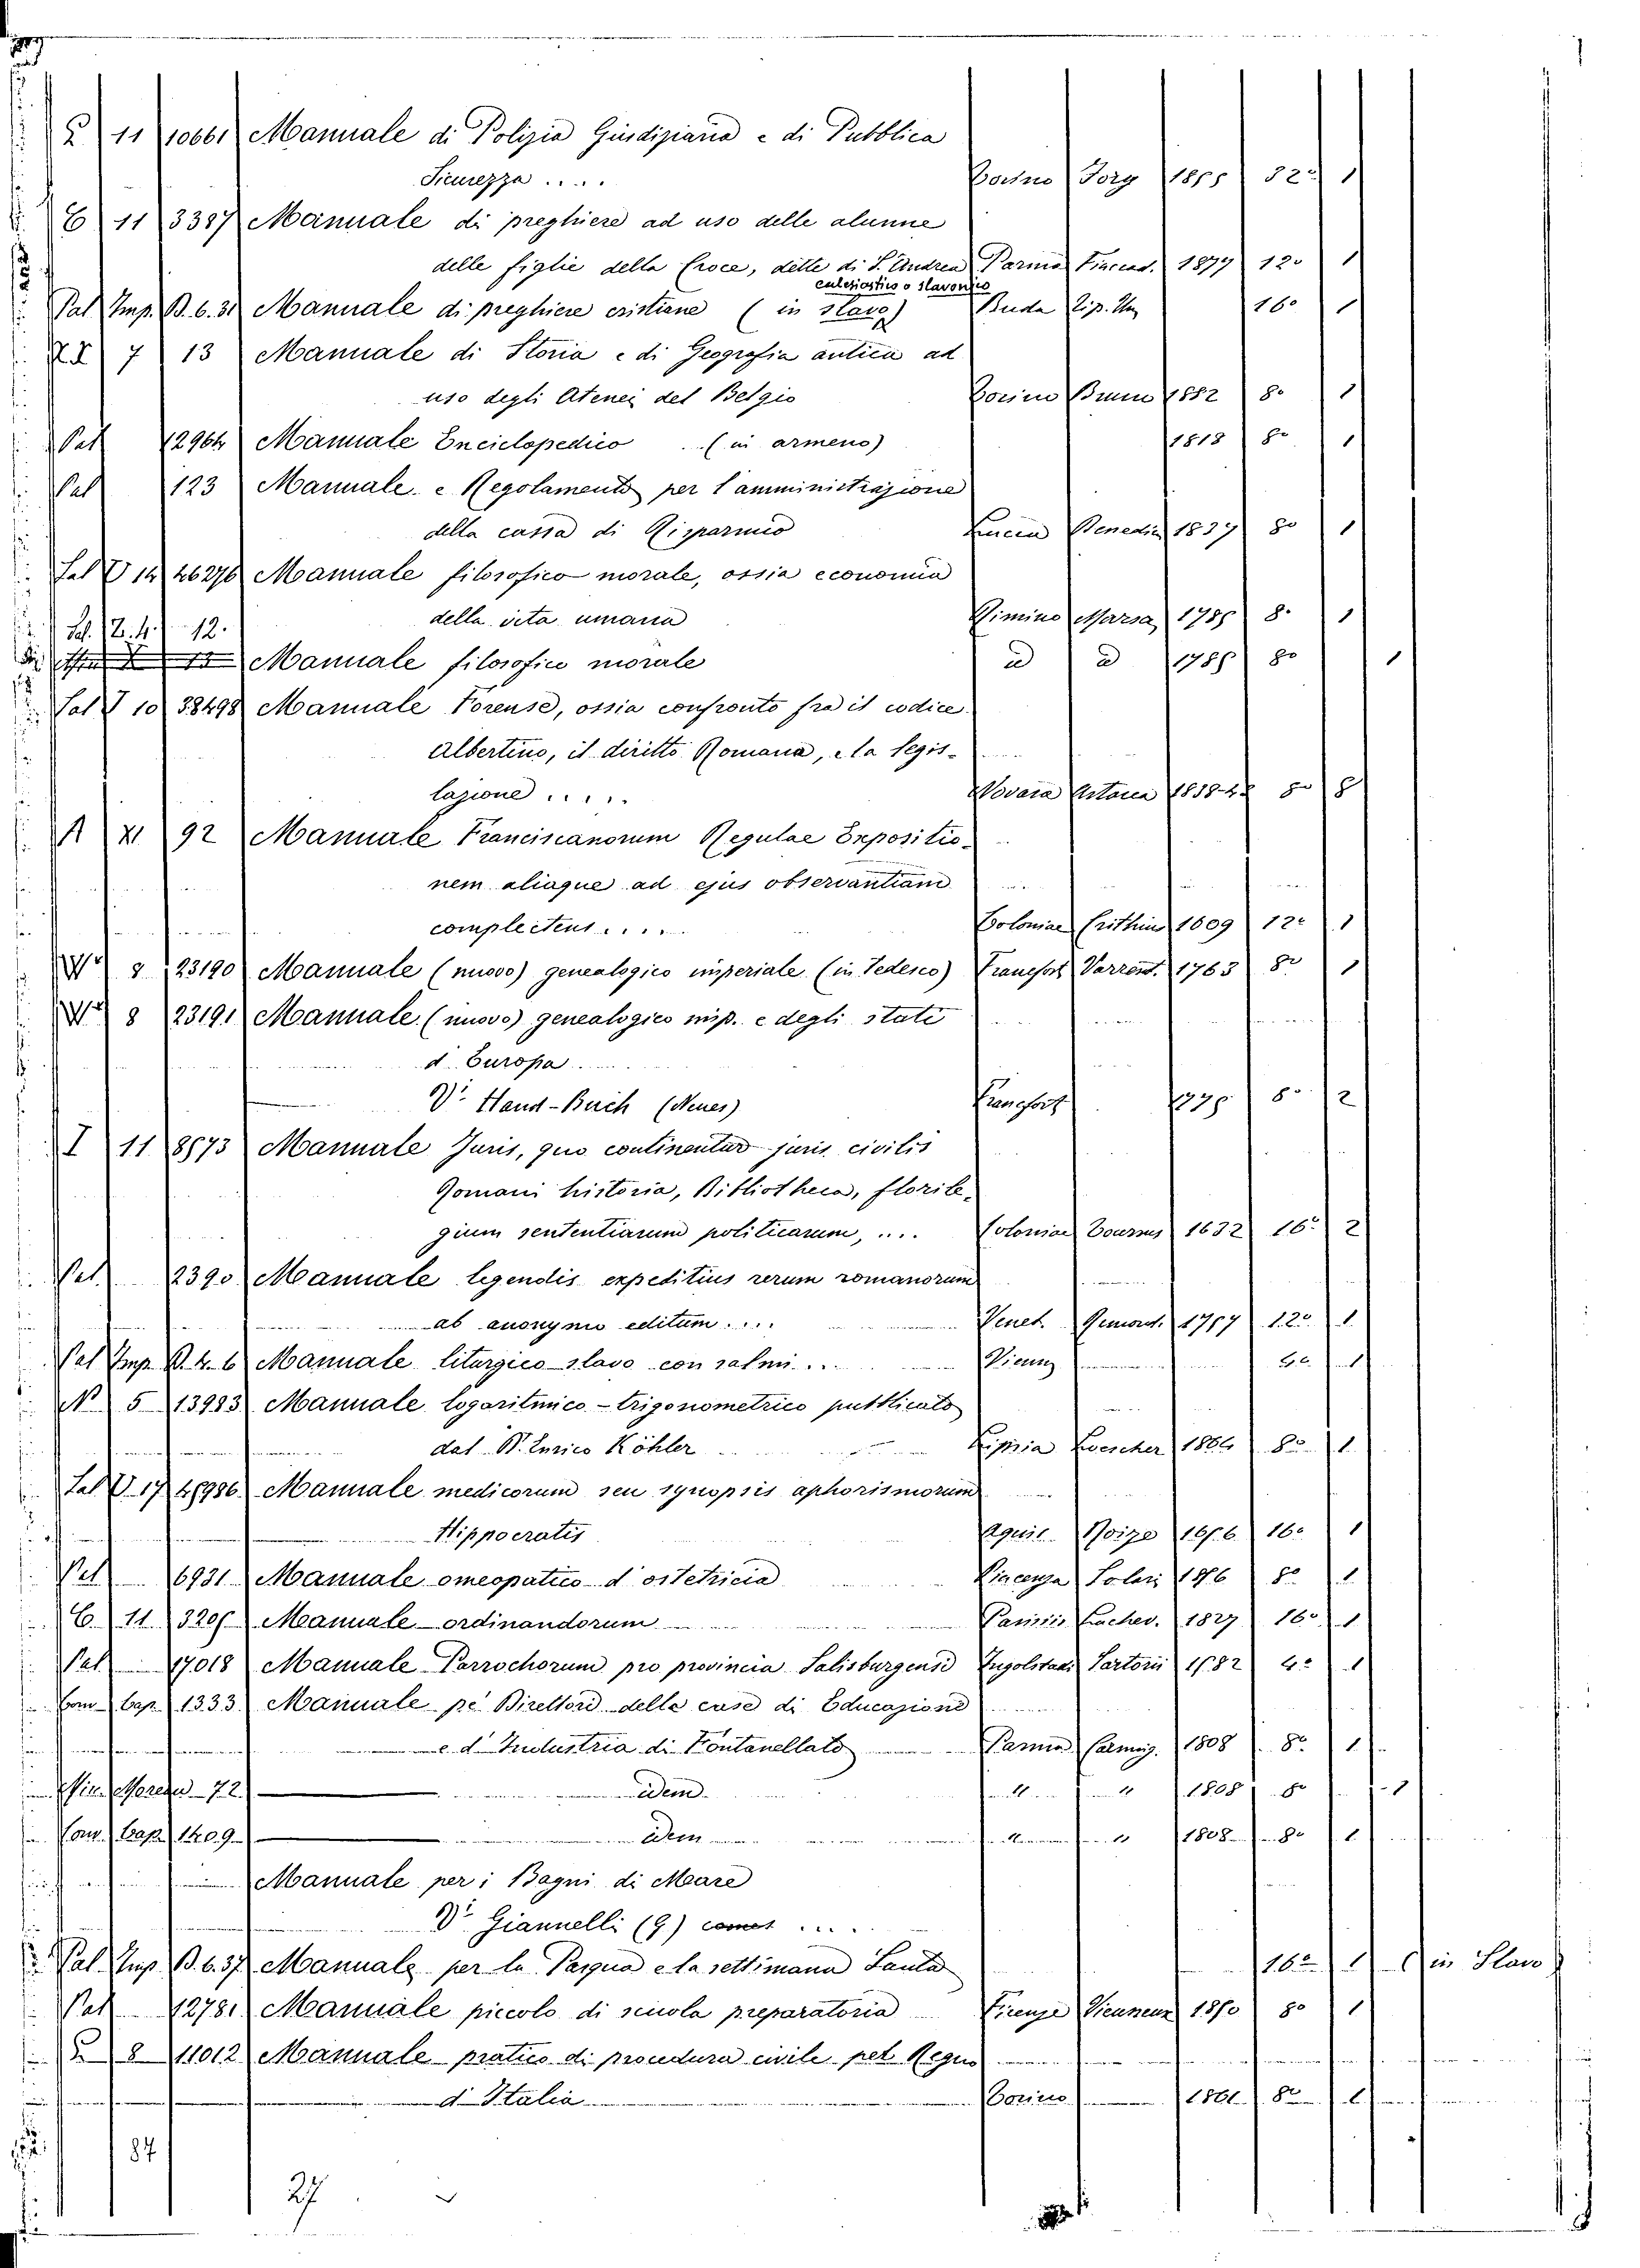 11 10661 Manuale di Polizia Giudiziaria e di Pubblica
Sicurezza ..... Torino 1855 32º 1
E 11 3387 Manuale di preghiere ad uso delle alunne
delle figlie della Croce, dette di S. Andrea Parma Fiaccad. 1877 12º 1
ecclesiastico o slavonico
Pal Imp. B.6.31 Manuale di preghiere cristiane (in slavo) Buda Tip. Un 16º 1
7 13 Manuale di Storia e di Geografia antica ad
uso degli Atenei del Belgio Torino 1852 8º 1
Pal 12964 Manuale Enciclopedico .. (in armeno) 1818 8º 1
Pal 123 Manuale e Regolamento per l'amministrazione
della cassa di Risparmio Benedin 1837 8º 1
Sal V 14 46276 Manuale filosofico-morale, ossia economia
della vita umana Rimino Marsa 1785 8º 1
Sal. Z.4. 12.
Manuale filosofico morale id id 1785 8º 1
Sal V 10 38498 Manuale Forense, ossia confronto fra il codice
Albertino, il diritto Romano, e la legis-
lazione ..... Novara Artaria 1838-42 8º 8
A XI 92 Manuale Franciscanorum Regulae Expositio-
nem aliaque ad ejus observantiam
complectens ..... Coloniae Crithius 1609 12º 1
W 8 23190 Manuale (nuovo) genealogico imperiale (in Tedesco) Francfort Varrent. 1763 8º 1
W 8 23191 Manuale (nuovo) genealogico imp. e degli stati
d'Europa
Vº Hand-Buch (Neues) Francfort 8º 2
I 11 8573 Manuale Juris, quo continentur juris civilis
Romani historia, Bibliotheca, florile-
gium sententiarum politicarum, .... Coloniae 1632 16º 2
Pal. 2390 Manuale legendis expeditius rerum romanorum
ab anonymo editum .... Venet. Remond. 1757 12º 1
Pal Imp B.4.6 Manuale liturgico-slavo con salmi ... Vienn 1
N 5 13983 Manuale logaritmico-trigonometrico pubblicato
dal D. Enrico Köhler Lipsia Loescher 1864 8º 1
Sal V 17 48986 Manuale medicorum seu synopsis aphorismorum
Hippocratis 16º 1
Pal 6931 Manuale omeopatico d'ostetricia Piacenza Solari 8º 1
E 11 3205 Manuale ordinandorum Parisiis Lacher. 1827 16º 1
Pal 17018 Manuale Parrochorum pro provincia Salisburgensi Ingolstadi Sartorii 1582 4º 1
Con Cap. 1333 Manuale pe' Direttori delle case di Educazione
e d'Industria di Fontanellato Parma Carmig. 1808 8º 1
Mic. Moreau 72 idem " " 1808 8º 1
Con. Cap. 1409 idem " " 1808 8º 1
Manuale per i Bagni di Mare
Vº Giannelli (G)
Pal. Imp B.6.37 Manuale per la Pasqua e la settimana Santa 16º 1 (in Slavo)
Pal 12781 Manuale piccolo di scuola preparatoria Firenze Vieusseux 1850 8º 1
8 11012 Manuale pratico di procedura civile pel Regno
d'Italia Torino 1861 8º 1
87
27